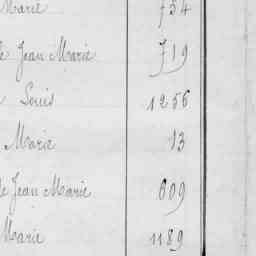 Marie 754
le Jean Marie 719
Louis 1256
Marie 13
de Jean Marie 609
Marie 1189